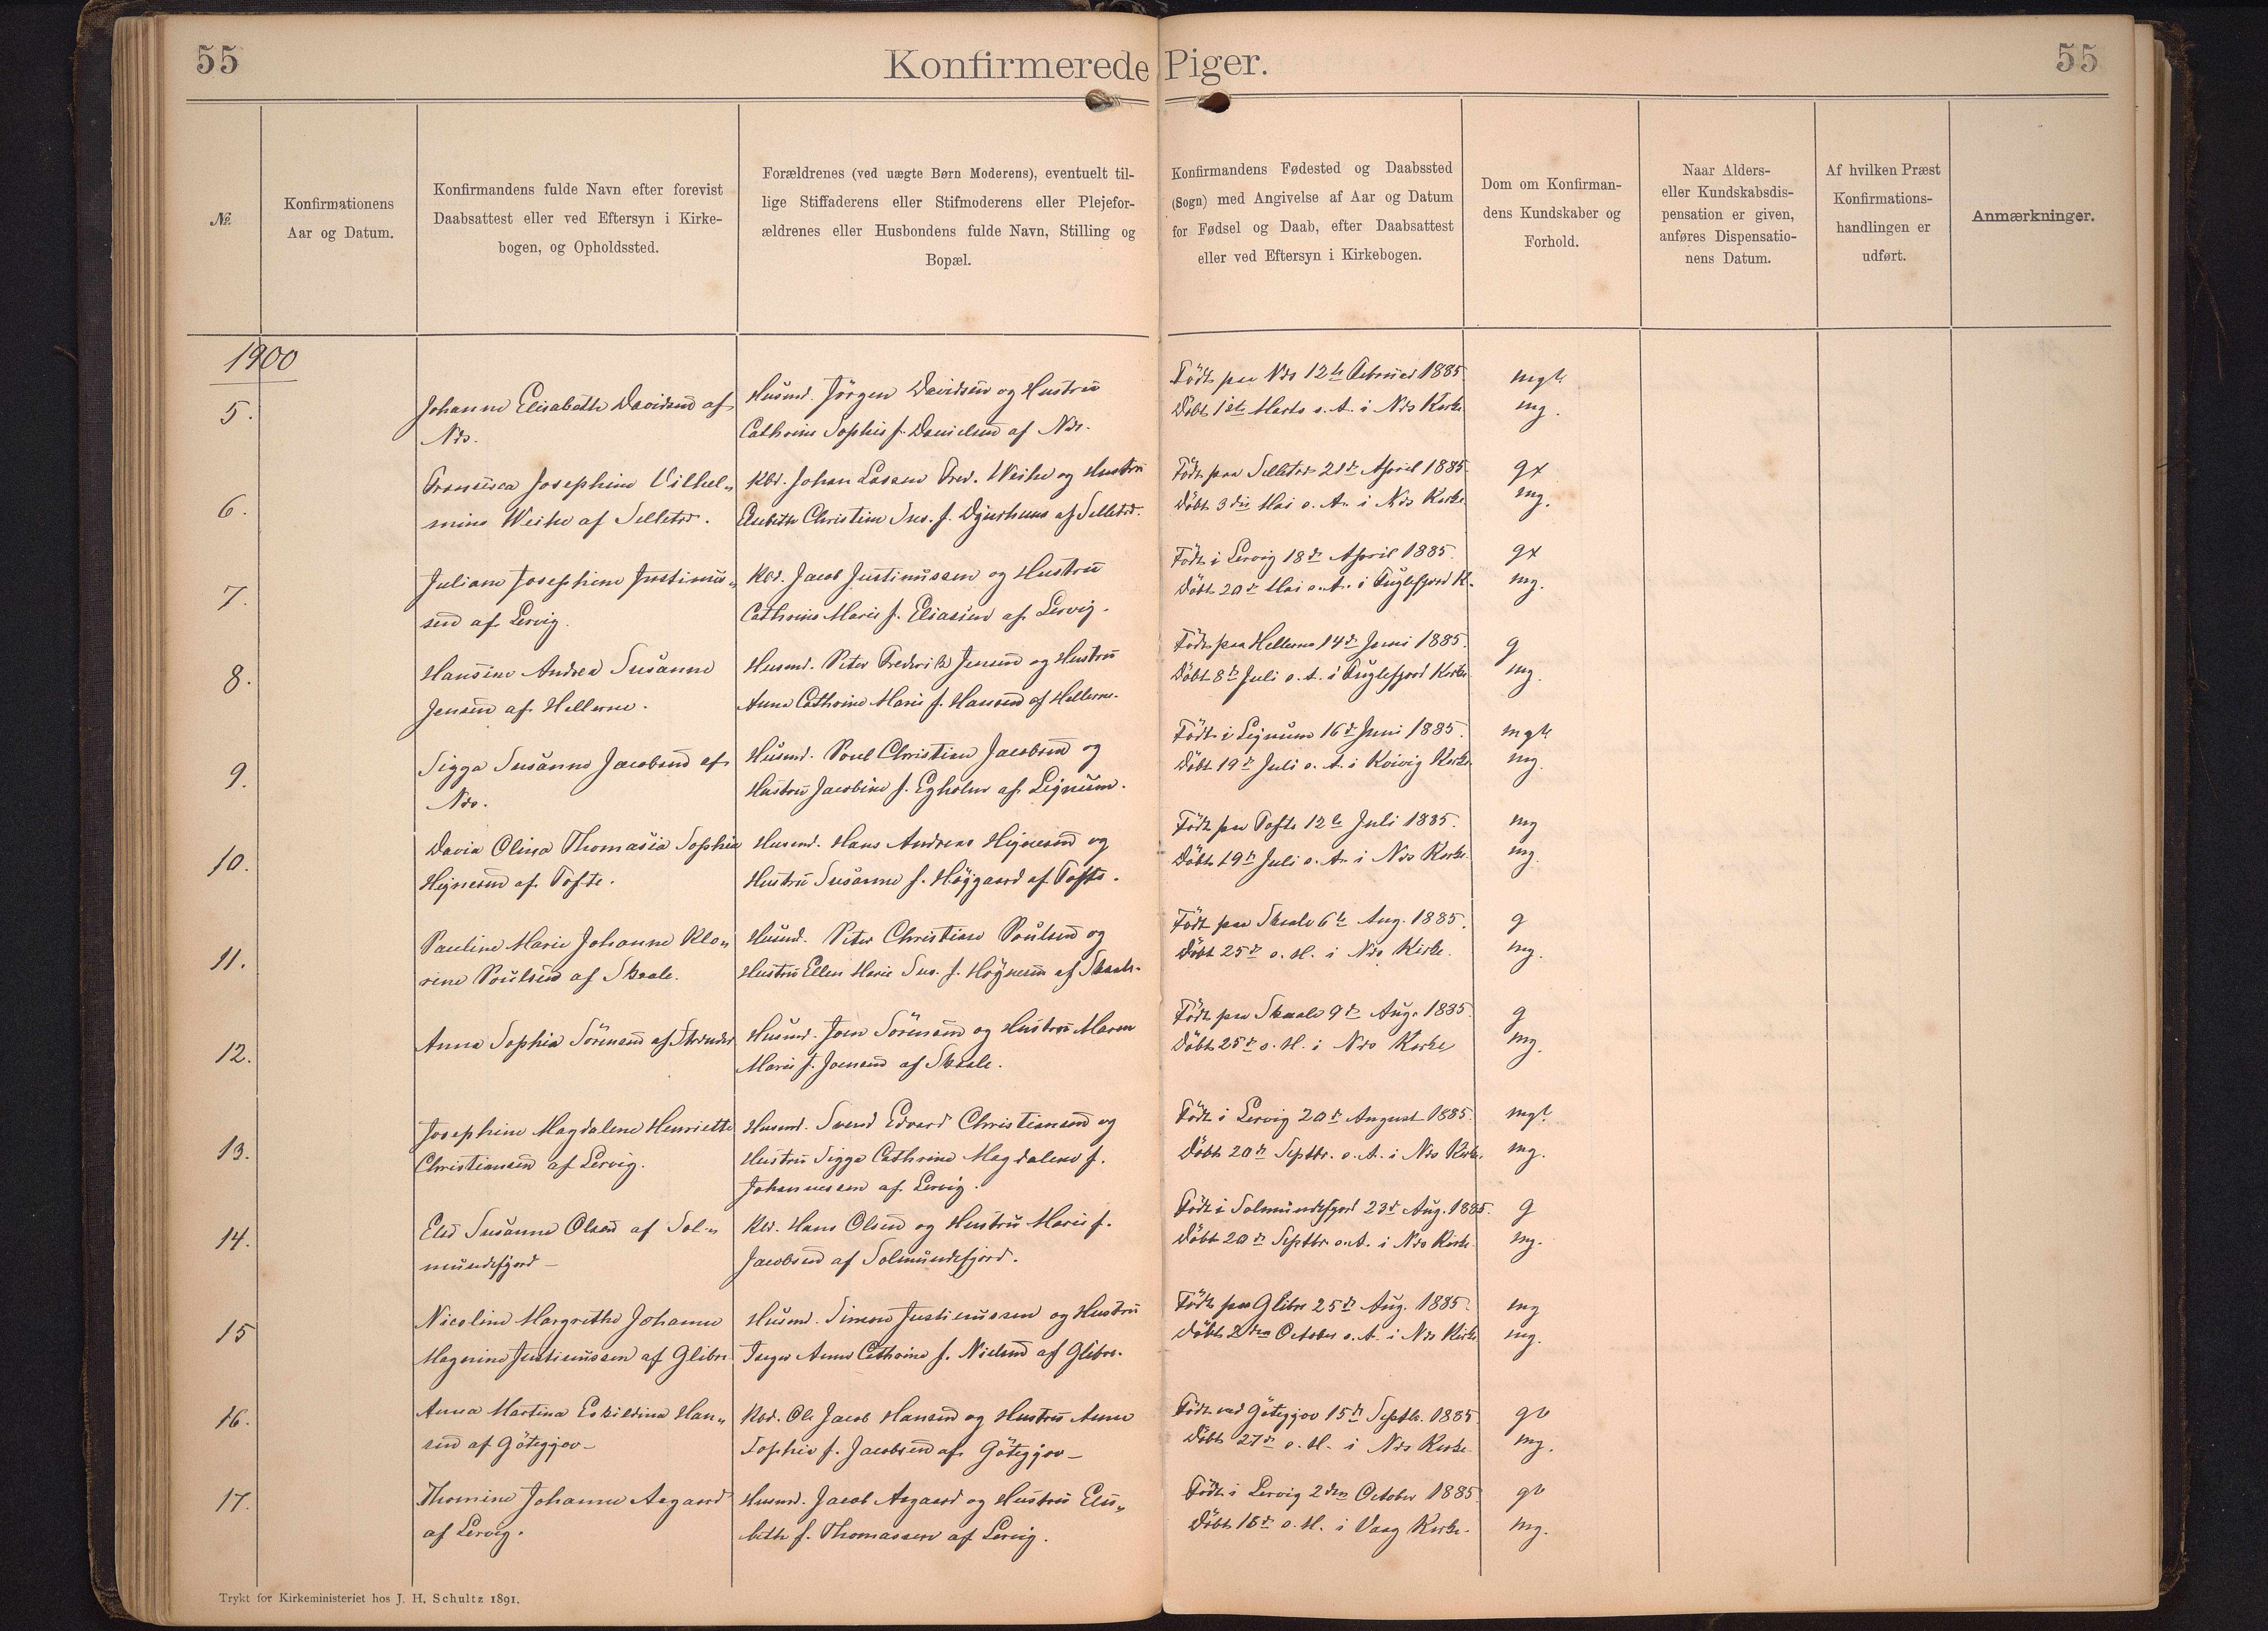 55
Konfirmerede Piger.
55
№.
Konfirmationens
Aar og Datum.
Konfirmandens fulde Navn efter forevist
Daabsattest eller ved Eftersyn i Kirke-
bogen, og Opholdssted.
Forældrenes (ved uægte Børn Moderens), eventuelt til-
lige Stiffaderens eller Stifmoderens eller Plejefor-
ældrenes eller Husbondens fulde Navn, Stilling og
Bopæl.
Konfirmandens Fødested og Daabssted
(Sogn) med Angivelse af Aar og Datum
for Fødsel og Daab, efter Daabsattest
eller ved Eftersyn i Kirkebogen.
Dom om Konfirman-
dens Kundskaber og
Forhold.
Naar Alders-
eller Kundskabsdis-
pensation er given,
anføres Dispensatio-
nens Datum.
Af hvilken Præst
Konfirmations-
handlingen er
udført.
Anmærkninger.
1900
5.
Johanne Elisabeth Davidsen af
Nes.
Husmd. Jörgen Davidsen og Hustru
Cathrine Sophie f. Danielsen af Nes.
Födt paa Nes 12te Februar 1885.
Döbt 1ste Marts s. A. i Nes Kirke
mgt.
mg.
6.
Fransisca Josephine Vilhel„
mine Weihe af Selletræ.
Kbd. Johan Lassen Fred. Weihe og Hustru
Elsebeth Christine Sus. f. Djurhuus af Selletræ.
Födt paa Selletræ 21de April 1885.
Döbt 3die Mai s. A. i Nes Kirke
gx
mg.
7.
Juliane Josephine Justinus„
sen af Lervig.
Kbd. Jacob Justinussen og Hustru
Cathrine Marie f. Eliasen af Lervig.
Födt i Lervig 18de April 1885.
Döbt 20de Mai s. A. i Fuglefjord K.
gx
mg.
8.
Hansine Andrea Susanne
Jensen af Hellerne.
Husmd. Peter Frederik Jensen og Hustru
Anne Cathrine Marie f. Hansen af Hellerne.
Födt paa Hellerne 14de Juni 1885.
Döbt 8de Juli s. A. i Fuglefjord Kirke
g
mg.
9.
Sigga Susanne Jacobsen af
Nes.
Husmd. Poul Christian Jacobsen og
Hustru Jacobine f. Egholm af Lejnum.
Födt i Lejnum 16de Juni 1885.
Döbt 19de Juli s. A. i Kvivig Kirke
mgt.
mg.
10.
Davia Olina Thomasia Sophia
Hejnesen af Tofte.
Husmd. Hans Andreas Hejnesen og
Hustru Susanne f. Höjgaard af Tofte.
Födt paa Tofte 12te Juli 1885.
Döbt 19de Juli s. A. i Nes Kirke
mg
mg.
11.
Pauline Marie Johanne Klo„
rine Poulsen af Skaale.
Husmd. Peter Christian Poulsen og
Hustru Ellen Marie Sus. f. Höjnesen af Skaale.
Födt paa Skaale 6te Aug. 1885.
Döbt 25de s. M. i Nes Kirke.
g
mg.
12.
Anna Sophia Sörensen af Strender
Husmd. Joen Sörensen og Hustru Maren
Marie f. Joensen af Skaale.
Födt paa Skaale 9de Aug. 1885.
Döbt 25de s. M. i Nes Kirke
g
mg.
13.
Josephine Magdalene Henriette
Christiansen af Lervig.
Husmd. Svend Edvard Christiansen og
Hustru Sigga Cathrine Magdalene f.
Johannessen af Lervig.
Födt i Lervig 20de August 1885.
Döbt 20de Septbr. s. A. i Nes Kirke
mgt.
mg.
14.
Else Susanne Olsen af Sol„
mundefjord
Kbd. Hans Olsen og Hustru Marie f.
Jacobsen af Solmundefjord.
Födt i Solmundefjord 23de Aug. 1885.
Döbt 20de Septbr. s. A. i Nes Kirke
g
mg.
15
Nicoline Margrethe Johanne
Magnine Justinussen af Glibre
Husmd. Simon Justinussen og Hustru
Inger Anne Cathrine f. Nielsen af Glibre.
Födt paa Glibre 25de Aug. 1885.
Döbt 2den October s. A. i Nes Kirke
mg
mg.
16.
Anna Martina Eskildina Han„
sen af Götegjov
Kbd. Ole Jacob Hansen og Hustru Anne
Sophie f. Jacobsen af Götegjov
Födt ved Götegjov 15de Septbr. 1885
Döbt 27de s. M. i Nes Kirke.
gv
mg.
17.
Thomine Johanne Aagaard
af Lervig.
Husmd. Jacob Aagaard og Hustru Else„
beth f. Thomassen af Lervig.
Födt i Lervig 2den October 1885
Döbt 15de s. M. i Vaag Kirke.
gv
mg.
Trykt for Kirkeministeriet hos J. H. Schultz 1891.